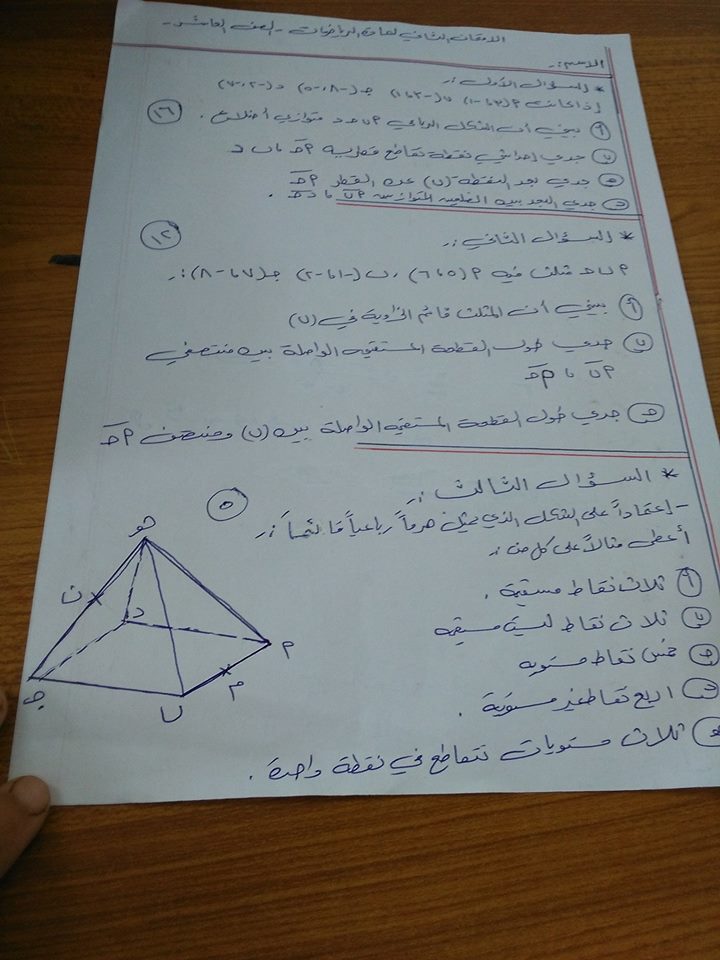 الامتحان الثاني لمادة الرياضيات - الصف العاشر -
الاسم :-
* السؤال الأول :-
إذا كانت
١٦
أ بيني أن الشكل الرباعي أ ب جـ د متوازي أضلاع .
ب جدي إحداثيي نقطة تقاطع قطريه أ جـ ، ب د
جـ جدي بعد النقطة (ب) عن القطر أ جـ
د جدي البعد بين الضلعين المتوازيين أ ب ، د جـ .
* السؤال الثاني :-
١٢
أ ب جـ مثلث فيه أ (٥ ، ٦) ، ب (-١ ، -٢) جـ (٧ ، -٨) :-
أ بيني أن المثلث قائم الزاوية في (ب)
ب جدي طول القطعة المستقيمة الواصلة بين منتصفي
أ ب ، أ جـ
جـ جدي طول القطعة المستقيمة الواصلة بين (ب) ومنتصف أ جـ
* السؤال الثالث :-
٥
- إعتماداً على الشكل الذي يمثل هرماً رباعياً قائماً :-
أعطي مثالاً على كل من :-
أ ثلاث نقاط مستقيمة .
ب ثلاث نقاط ليست مستقيمة
جـ خمس نقاط مستوية
د اربع نقاط غير مستوية .
هـ ثلاث مستويات تتقاطع في نقطة واحدة .
هـ
ن
د
أ
م
ب
جـ